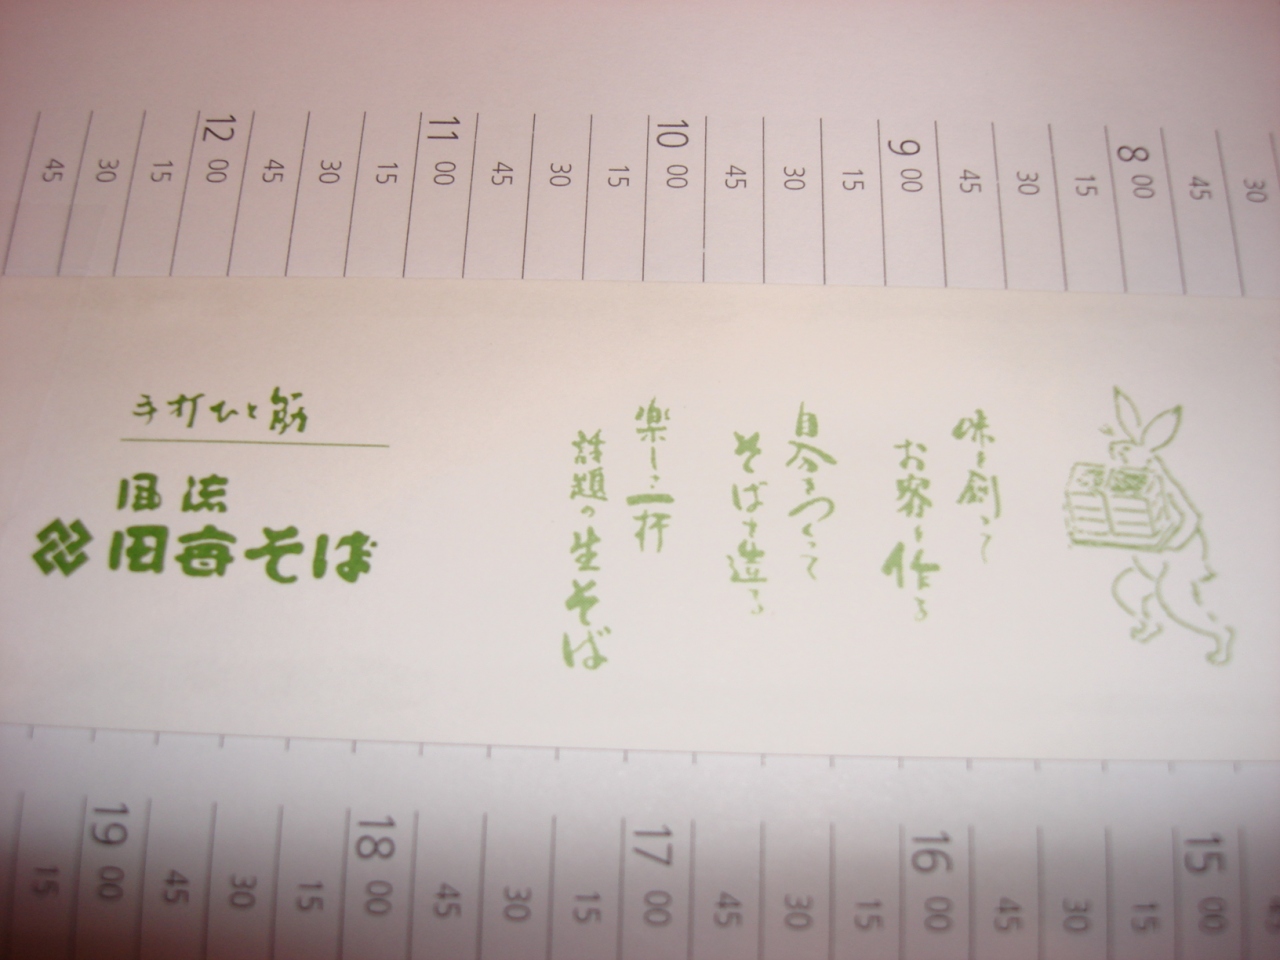 味を創って
お客を作る
自分をつくって
そばを造る
楽しさ一杯
話題の生そば
手打ひと筋
風流
田毎そば
30
45
8 00
15
30
45
9 00
15
30
45
10 00
15
30
45
11 00
15
30
45
12 00
15
30
45
15 00
15
30
45
16 00
15
30
45
17 00
15
30
45
18 00
15
30
45
19 00
15